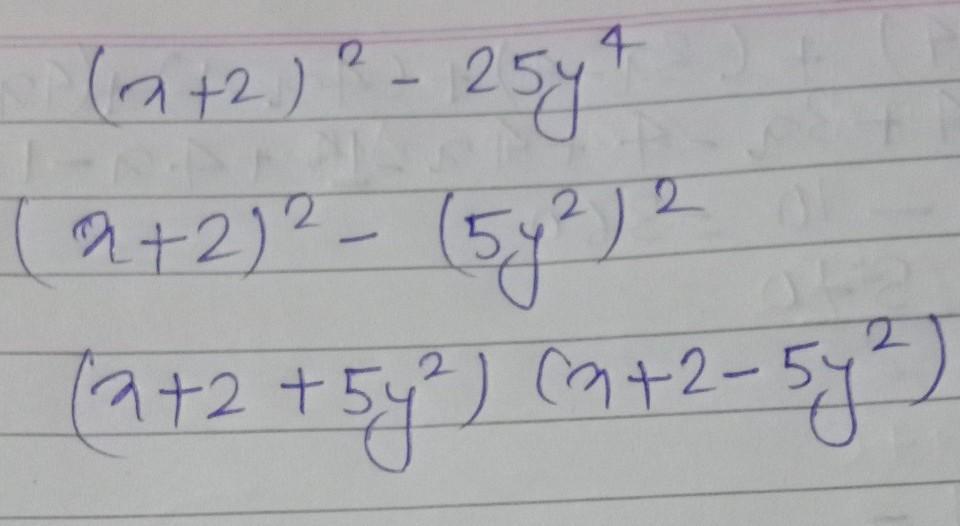 (x+2)² - 25y⁴
(x+2)² - (5y²)²
(x+2+5y²) (x+2-5y²)